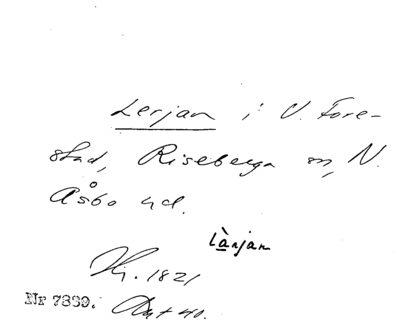 Lerjan i V. Fore-
stad, Riseberga sn, N.
Åsbo hd.
länjan
Hj. 1821
Nr 7869. Akt 40.